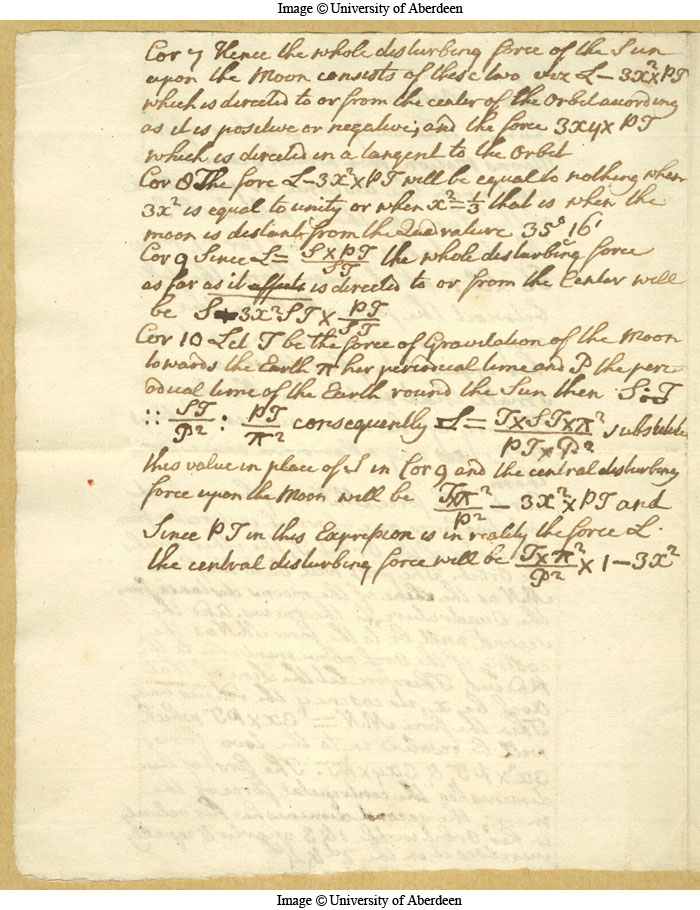 Image © University of Aberdeen
Cor 7 Hence the whole disturbing force of the Sun
upon the Moon consists of these two viz L – 3x²×PT
which is directed to or from the center of the Orbit according
as it is positive or negative; and the force 3xy × PT
which is directed in a tangent to the Orbit
Cor 8 The force L–3x²×PT will be equal to nothing when
3x² is equal to unity or when x²=⅓ that is when the
moon is distant from the Quadrature 35° 16'
Cor 9 Since L = S×PT/ST the whole disturbing force
as far as it affects is directed to or from the Center will
be S – 3x²ST × PT/ST
Cor 10 Let T be the force of Gravitation of the Moon
towards the Earth π her periodical time and P the peri-
odical time of the Earth round the Sun then S:T
:: ST/P² : PT/π² consequently S = T×ST×π²/PT×P² substitute
this value in place of S in Cor 9 and the central disturbing
force upon the Moon will be T×π²/P² – 3x²×PT and
Since PT in this Expression is in reality the force L.
the central disturbing force will be T×π²/P² × 1 – 3x²
Image © University of Aberdeen